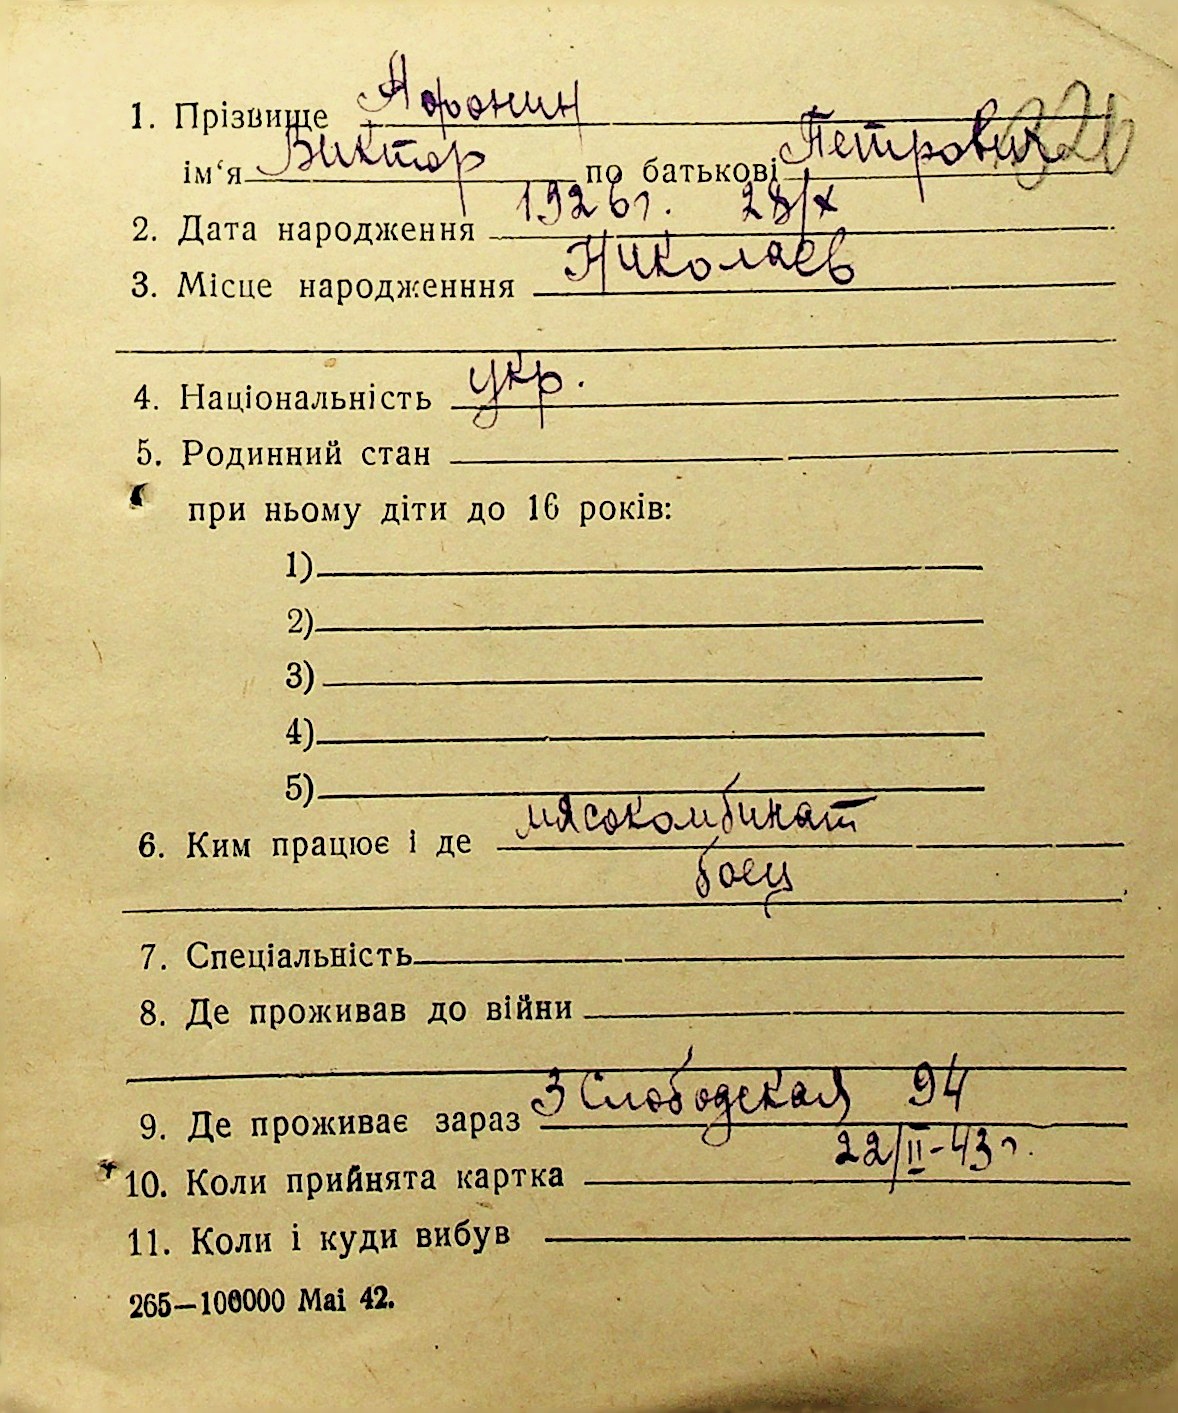 1. Прізвище Афонин
ім‘я Виктор по батькові Петрович
2. Дата народження 1926 г. 28/X
3. Місце народженння Николаев
4. Національність укр.
5. Родинний стан
при ньому діти до 16 років:
1)
2)
3)
4)
5)
6. Ким працює і де мясокомбинат
боец
7. Спеціальність
8. Де проживав до війни
9. Де проживає зараз 3 Слободская 94
10. Коли прийнята картка 22/II-43 г.
11. Коли і куди вибув
265—100000 Mai 42.